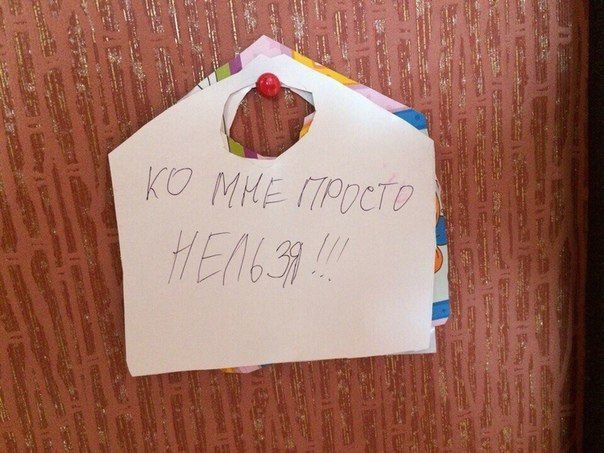 КО МНЕ ПРОСТО
НЕЛЬЗЯ!!!